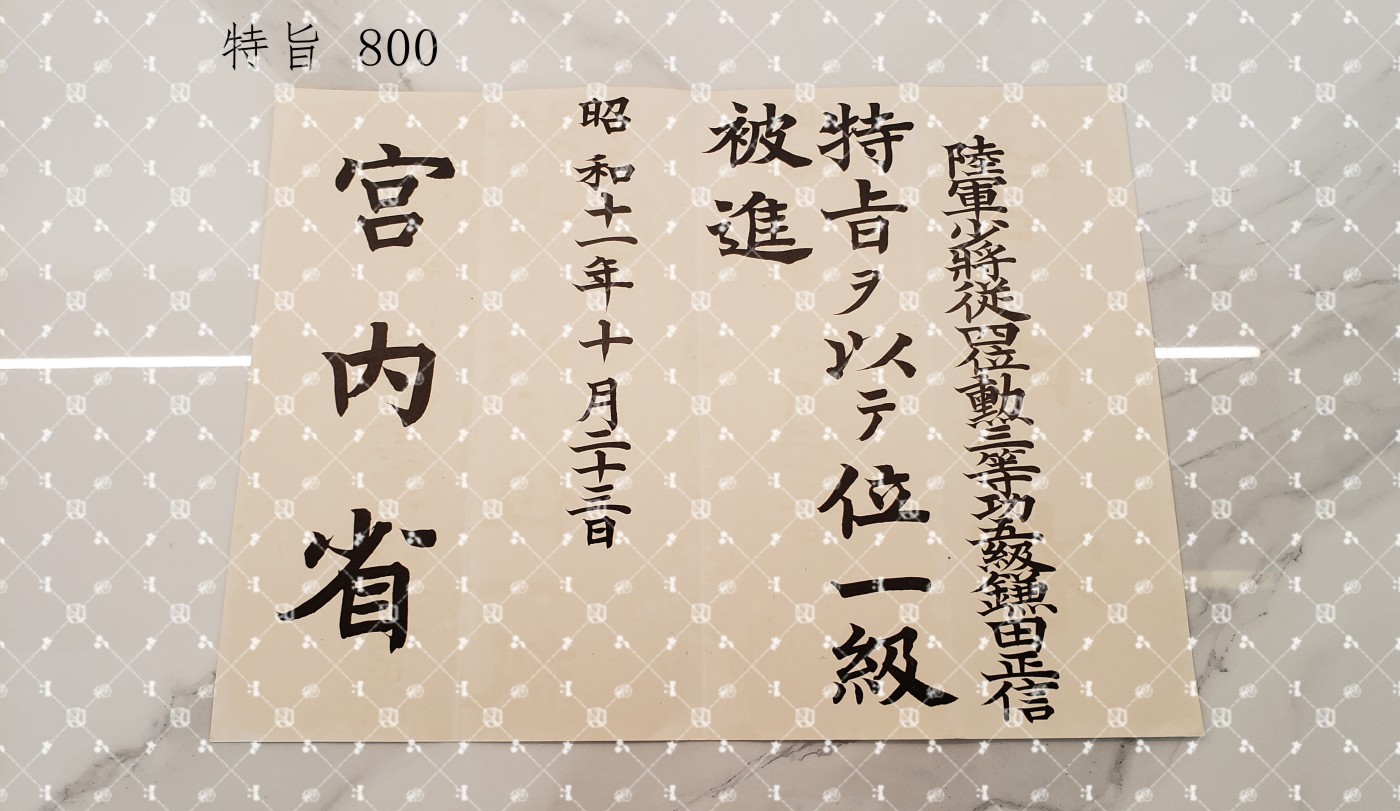 特旨 800
陸軍少將從四位勳三等功五級鎌田正信
特旨ヲ以テ位一級
被進
昭和十一年十月二十三日
宮内省